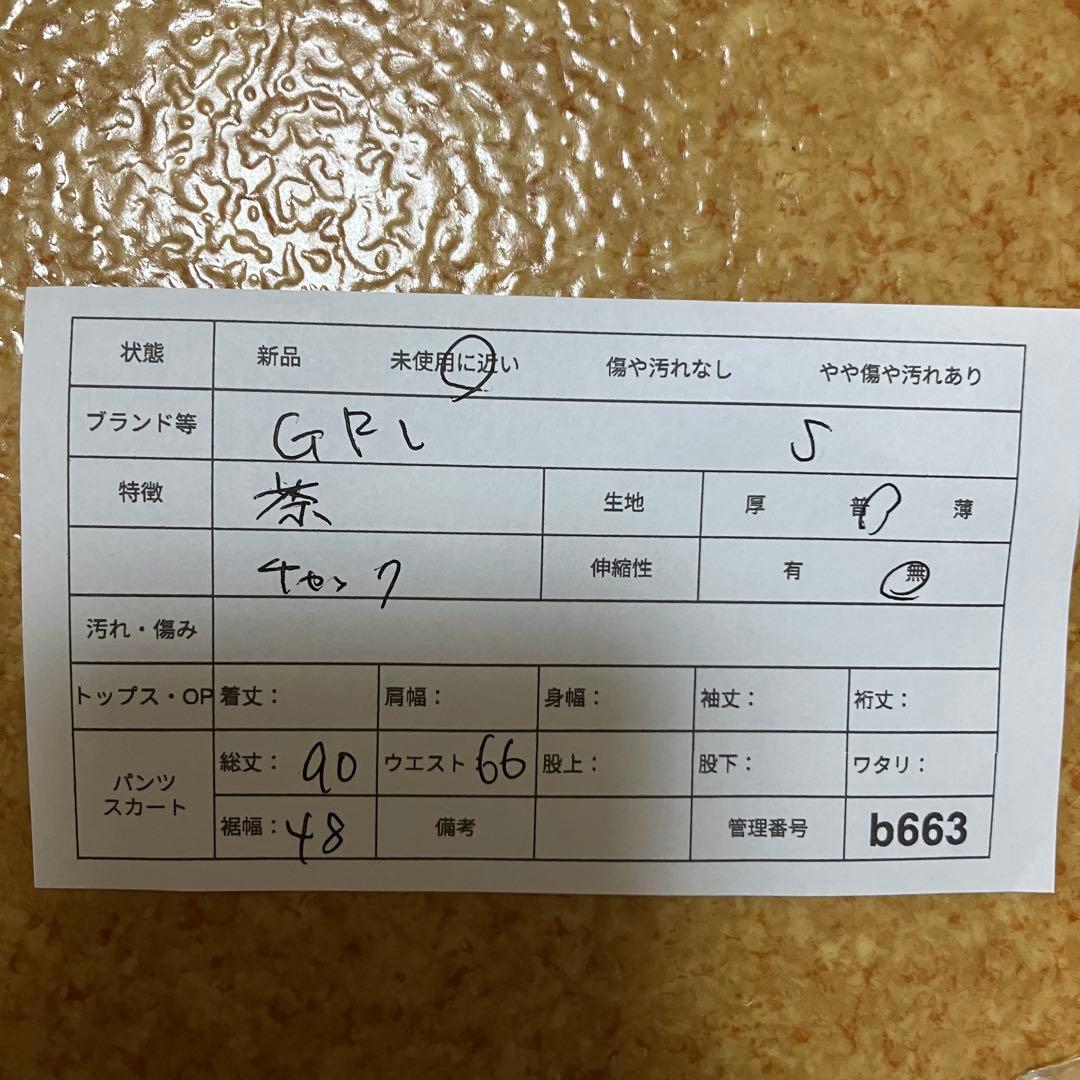 状態 新品 未使用に近い 傷や汚れなし やや傷や汚れあり
ブランド等 GRL S
特徴 茶 生地 厚 普 薄
チェック 伸縮性 有 無
汚れ・傷み
トップス・OP 着丈: 肩幅: 身幅: 袖丈: 裄丈:
パンツ スカート 総丈: 90 ウエスト: 66 股上: 股下: ワタリ:
裾幅: 48 備考 管理番号 b663